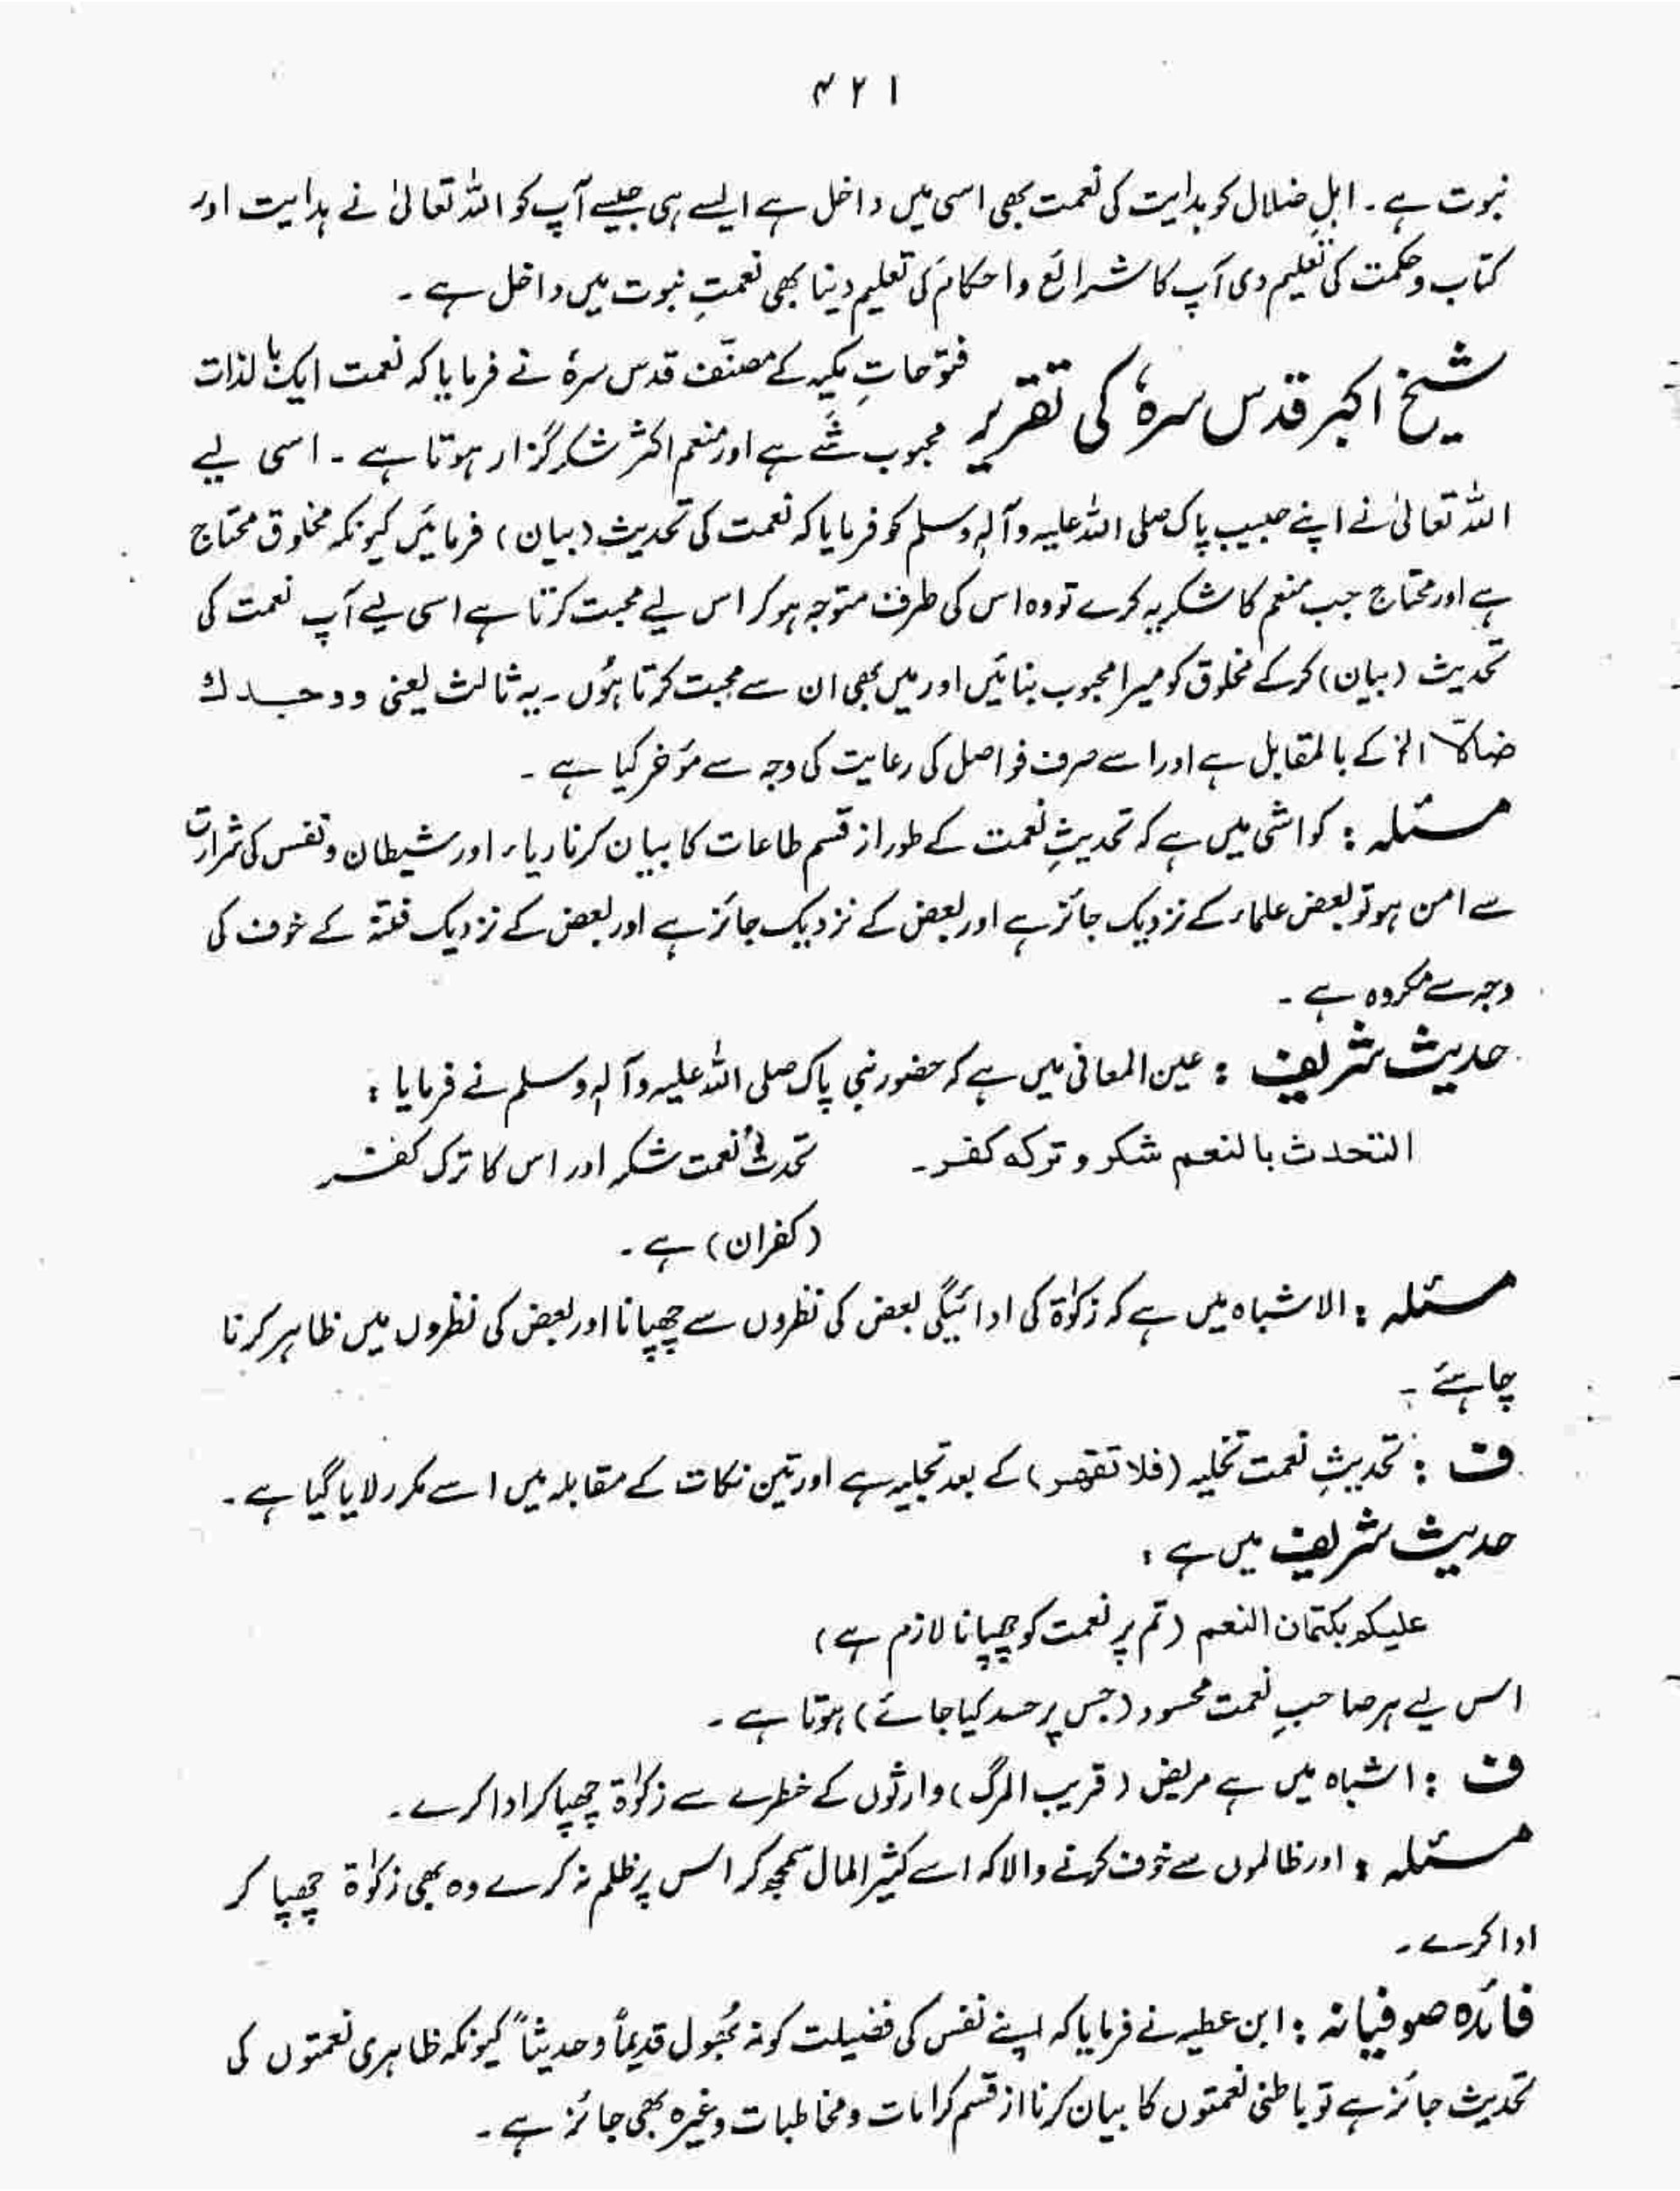 ۴۲۱
نبوت ہے ۔ اہلِ ضلال کو ہدایت کی نعمت بھی اسی میں داخل ہے ایسے ہی جیسے آپ کو اللہ تعالیٰ نے ہدایت اور
کتاب و حکمت کی تعلیم دی آپ کا شرائع و احکام کی تعلیم دینا بھی نعمتِ نبوت میں داخل ہے ۔
شیخ اکبر قدس سرہٗ کی تقریر فتوحاتِ مکیہ کے مصنّف قدس سرہٗ نے فرمایا کہ نعمت ایک بالذات
محبوب شَے ہے اور منعم اکثر شکر گزار ہوتا ہے ۔ اسی لیے
اللہ تعالیٰ نے اپنے حبیب پاک صلی اللہ علیہ وآلہٖ وسلم کو فرمایا کہ نعمت کی تحدیث (بیان) فرمائیں کیونکہ مخلوق محتاج
ہے اور محتاج جب منعم کا شکریہ کرے تو وہ اس کی طرف متوجہ ہو کر اس لیے محبت کرتا ہے اسی لیے آپ نعمت کی
تحدیث (بیان) کر کے مخلوق کو میرا محبوب بنائیں اور میں بھی ان سے محبت کرتا ہُوں ۔ یہ ثالث یعنی ووجدک
ضالاّ الخ کے بالمقابل ہے اور اسے صرف فواصل کی رعایت کی وجہ سے مؤخر کیا ہے ۔
مسئلہ : کواشی میں ہے کہ تحدیثِ نعمت کے طور از قسم طاعات کا بیان کرنا ریاء اور شیطان و نفس کی شرارت
سے امن ہو تو بعض علماء کے نزدیک جائز ہے اور بعض کے نزدیک جائز ہے اور بعض کے نزدیک فتنہ کے خوف کی
وجہ سے مکروہ ہے ۔
حدیث شریف : عین المعانی میں ہے کہ حضور نبی پاک صلی اللہ علیہ وآلہٖ وسلم نے فرمایا :
التحدث بالنعم شکر و ترکہ کفر ۔ تحدثِ نعمت شکر اور اس کا ترک کفر
(کفران) ہے ۔
مسئلہ : الاشباہ میں ہے کہ زکوٰۃ کی ادائیگی بعض کی نظروں سے چھپانا اور بعض کی نظروں میں ظاہر کرنا
چاہئے ۔
ف : تحدیثِ نعمت تخلیہ (فلا تقھر) کے بعد تحلیہ ہے اور تین نکات کے مقابلہ میں اسے مکرر لایا گیا ہے ۔
حدیث شریف میں ہے :
علیکم بکتمان النعم (تم پر نعمت کو چھپانا لازم ہے)
اس لیے ہر صاحبِ نعمت محسود (جس پر حسد کیا جائے) ہوتا ہے ۔
ف : اشباہ میں ہے مریض (قریب المرگ) وارثوں کے خطرے سے زکوٰۃ چھپا کر ادا کرے ۔
مسئلہ : اور ظالموں سے خوف کرنے والا کہ اسے کثیر المال سمجھ کر اس پر ظلم نہ کرے وہ بھی زکوٰۃ چھپا کر
ادا کرے ۔
فائدہ صوفیانہ : ابن عطیہ نے فرمایا کہ اپنے نفس کی فضیلت کو نہ بُھول قدیماً و حدیثاً کیونکہ ظاہری نعمتوں کی
تحدیث جائز ہے تو باطنی نعمتوں کا بیان کرنا از قسم کرامات و مخاطبات وغیرہ بھی جائز ہے ۔